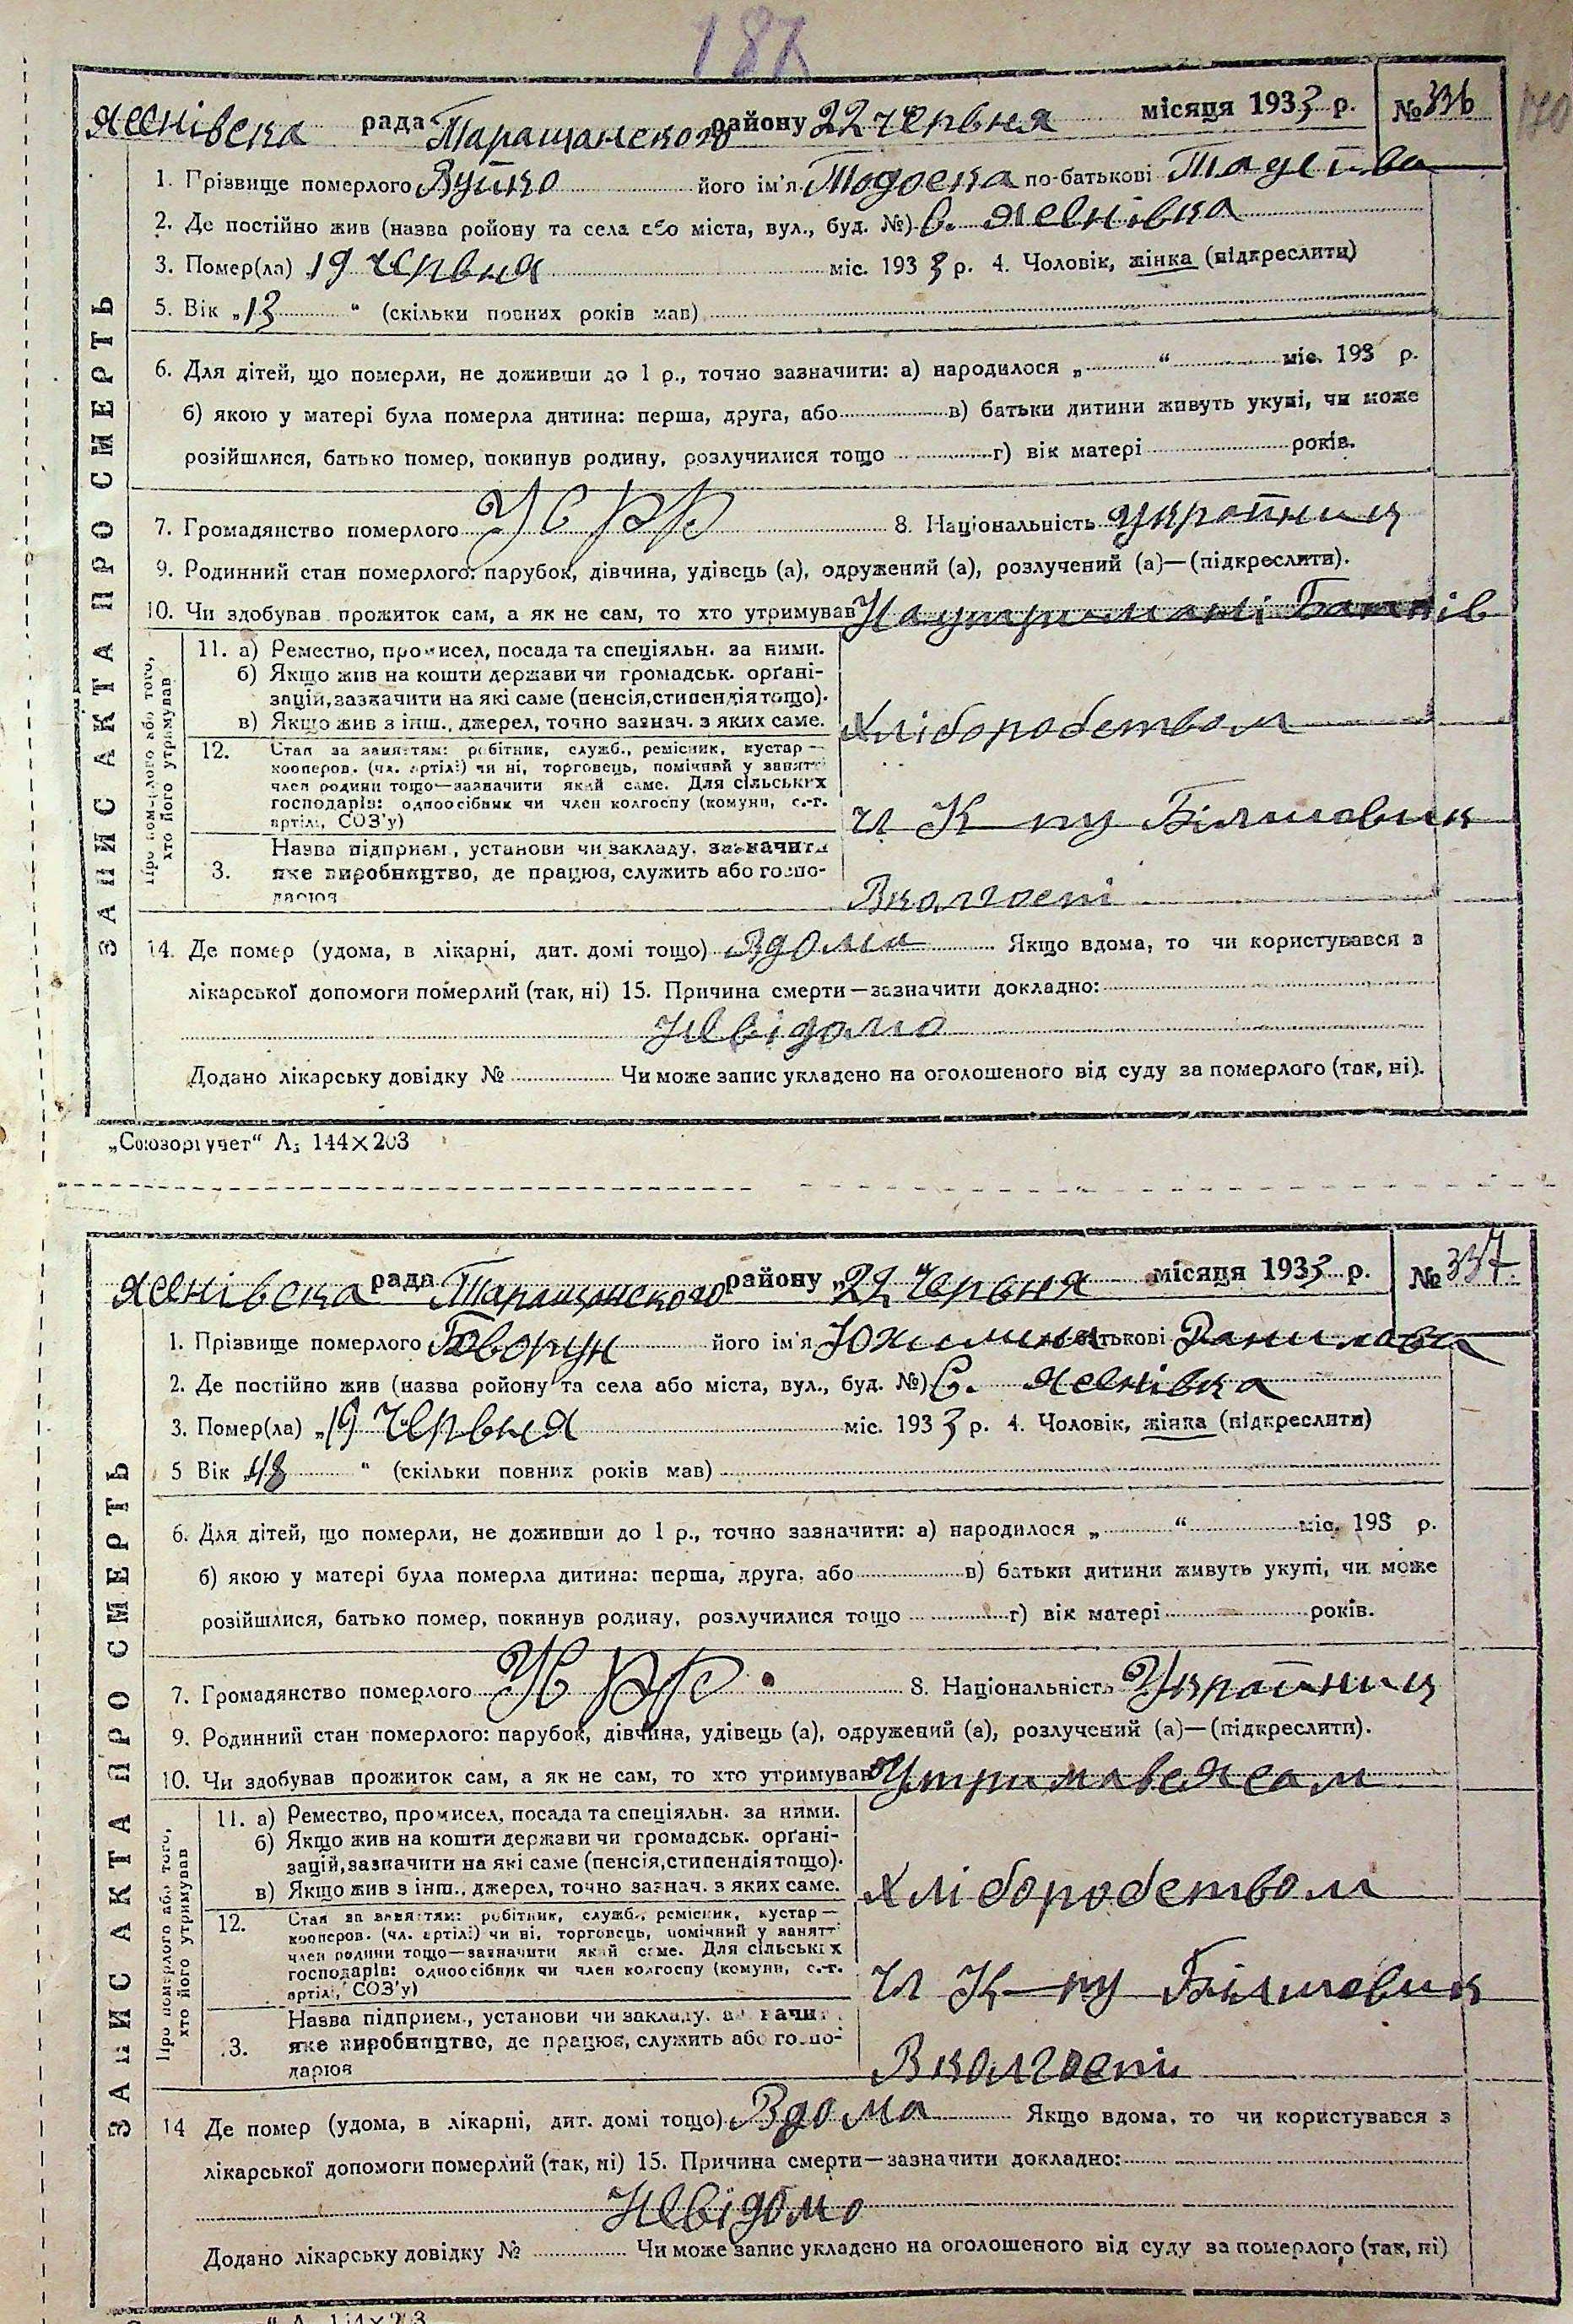 187
Яеснівска рада Таращанского району 22 червня місяця 1933 р. № 336
170
1. Прізвище померлого його ім'я Тодоска по-батькові
2. Де постійно жив (назва ройону та села або міста, вул., буд. №) с. Яеснівка
3. Помер(ла) „19 червня міс. 1933 р. 4. Чоловік, жінка (підкреслити)
5. Вік „13 “ (скільки повних років мав)
6. Для дітей, що померли, не доживши до 1 р., точно зазначити: а) народилося „ “ міс. 193 р.
б) якою у матері була померла дитина: перша, друга, або в) батьки дитини живуть укупі, чи може
розійшлися, батько помер, покинув родину, розлучилися тощо г) вік матері років.
7. Громадянство померлого УСРР 8. Національність Україниц
9. Родинний стан померлого: парубок, дівчина, удівець (а), одружений (а), розлучений (а)—(підкреслити).
10. Чи здобував прожиток сам, а як не сам, то хто утримував На утриманні Батьків
Про померлого або того, хто його утримував
11. а) Ремество, промисел, посада та спеціяльн. за ними.
б) Якщо жив на кошти держави чи громадськ. орґані-
зацій, зазначити на які саме (пенсія, стипендія тощо).
в) Якщо жив з інш., джерел, точно зазнач. з яких саме. Хліборобством
12. Стан за заняттям: робітник, служб., ремісник, кустар—
кооперов. (чл. артілі) чи ні, торговець, помічний у занятті
член родини тощо—зазначити який саме. Для сільських
господарів: одноосібник чи член колгоспу (комуни, с.-г.
артілі, СОЗ'у) чл К-пу Більшовик
Назва підприєм., установи чи закладу, зазначити
3. яке виробництво, де працює, служить або госпо-
дарює Вколгоспі
14. Де помер (удома, в лікарні, дит. домі тощо) Вдома Якщо вдома, то чи користувався з
лікарської допомоги померлий (так, ні) 15. Причина смерти—зазначити докладно:
Невідомо
Додано лікарську довідку № Чи може запис укладено на оголошеного від суду за померлого (так, ні).
ЗАПИС АКТА ПРО СМЕРТЬ
„Союзоргучет“ А5 144×203
Яеснівска рада Таращанского району „22 червня місяця 1933 р. № 337
1. Прізвище померлого Говорун його ім'я Юхимина по-батькові Данилова
2. Де постійно жив (назва ройону та села або міста, вул., буд. №) с. Яеснівка
3. Помер(ла) „19 червня міс. 1933 р. 4. Чоловік, жінка (підкреслити)
5 Вік 48 “ (скільки повних років мав)
6. Для дітей, що померли, не доживши до 1 р., точно зазначити: а) народилося „ “ міс. 193 р.
б) якою у матері була померла дитина: перша, друга, або в) батьки дитини живуть укупі, чи може
розійшлися, батько помер, покинув родину, розлучилися тощо г) вік матері років.
7. Громадянство померлого УСРР 8. Національність Україниц
9. Родинний стан померлого: парубок, дівчина, удівець (а), одружений (а), розлучений (а)—(підкреслити).
10. Чи здобував прожиток сам, а як не сам, то хто утримував Утримавсясам
Про померлого або того, хто його утримував
11. а) Ремество, промисел, посада та спеціяльн. за ними.
б) Якщо жив на кошти держави чи громадськ. орґані-
зацій, зазначити на які саме (пенсія, стипендія тощо).
в) Якщо жив з інш., джерел, точно зазнач. з яких саме. Хліборобством
12. Стан за заняттям: робітник, служб., ремісник, кустар—
кооперов. (чл. артілі) чи ні, торговець, помічний у занятті
член родини тощо—зазначити який саме. Для сільських
господарів: одноосібник чи член колгоспу (комуни, с.-г.
артілі, СОЗ'у) чл К-пу Більшовик
Назва підприєм., установи чи закладу, зазначити
3. яке виробництво, де працює, служить або госпо-
дарює Вколгоспі
14 Де помер (удома, в лікарні, дит. домі тощо) Вдома Якщо вдома, то чи користувався з
лікарської допомоги померлий (так, ні) 15. Причина смерти—зазначити докладно:
Невідомо
Додано лікарську довідку № Чи може запис укладено на оголошеного від суду за померлого (так, ні)
ЗАПИС АКТА ПРО СМЕРТЬ
“ А 144×203